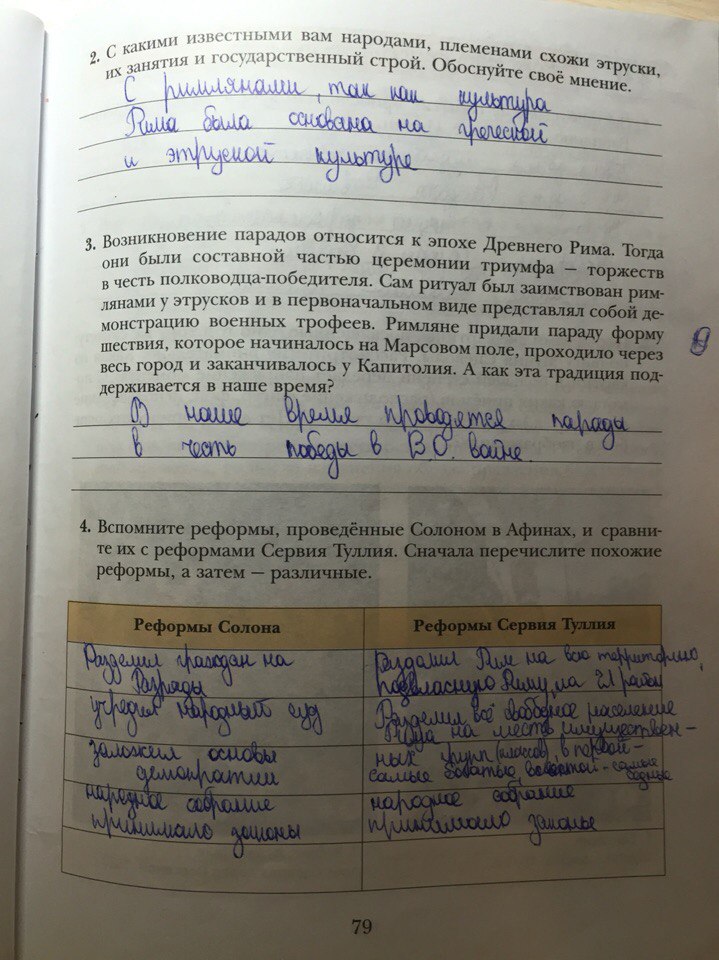 2. С какими известными вам народами, племенами схожи этруски,
их занятия и государственный строй. Обоснуйте своё мнение.
С римлянами, так как культура
Рима была основана на греческой
и этруской культуре
3. Возникновение парадов относится к эпохе Древнего Рима. Тогда
они были составной частью церемонии триумфа — торжеств
в честь полководца-победителя. Сам ритуал был заимствован рим-
лянами у этрусков и в первоначальном виде представлял собой де-
монстрацию военных трофеев. Римляне придали параду форму
шествия, которое начиналось на Марсовом поле, проходило через
весь город и заканчивалось у Капитолия. А как эта традиция под-
держивается в наше время?
В наше время проводятся парады
в честь победы в В.О. войне.
4. Вспомните реформы, проведённые Солоном в Афинах, и сравни-
те их с реформами Сервия Туллия. Сначала перечислите похожие
реформы, а затем — различные.
Реформы Солона
Реформы Сервия Туллия
Разделил граждан на
разряды
Разделил Рим на всю территорию,
подвласную Риму, на 21 район
учредил народный суд
Разделил всё свободное население
Рима на месть имуществен-
ных групп (классов), в первой-
самые богатые, в шестой - самые
бедные
заложил основы
демократии
народное собрание
принимало законы
народное собрание
принимало законы
79